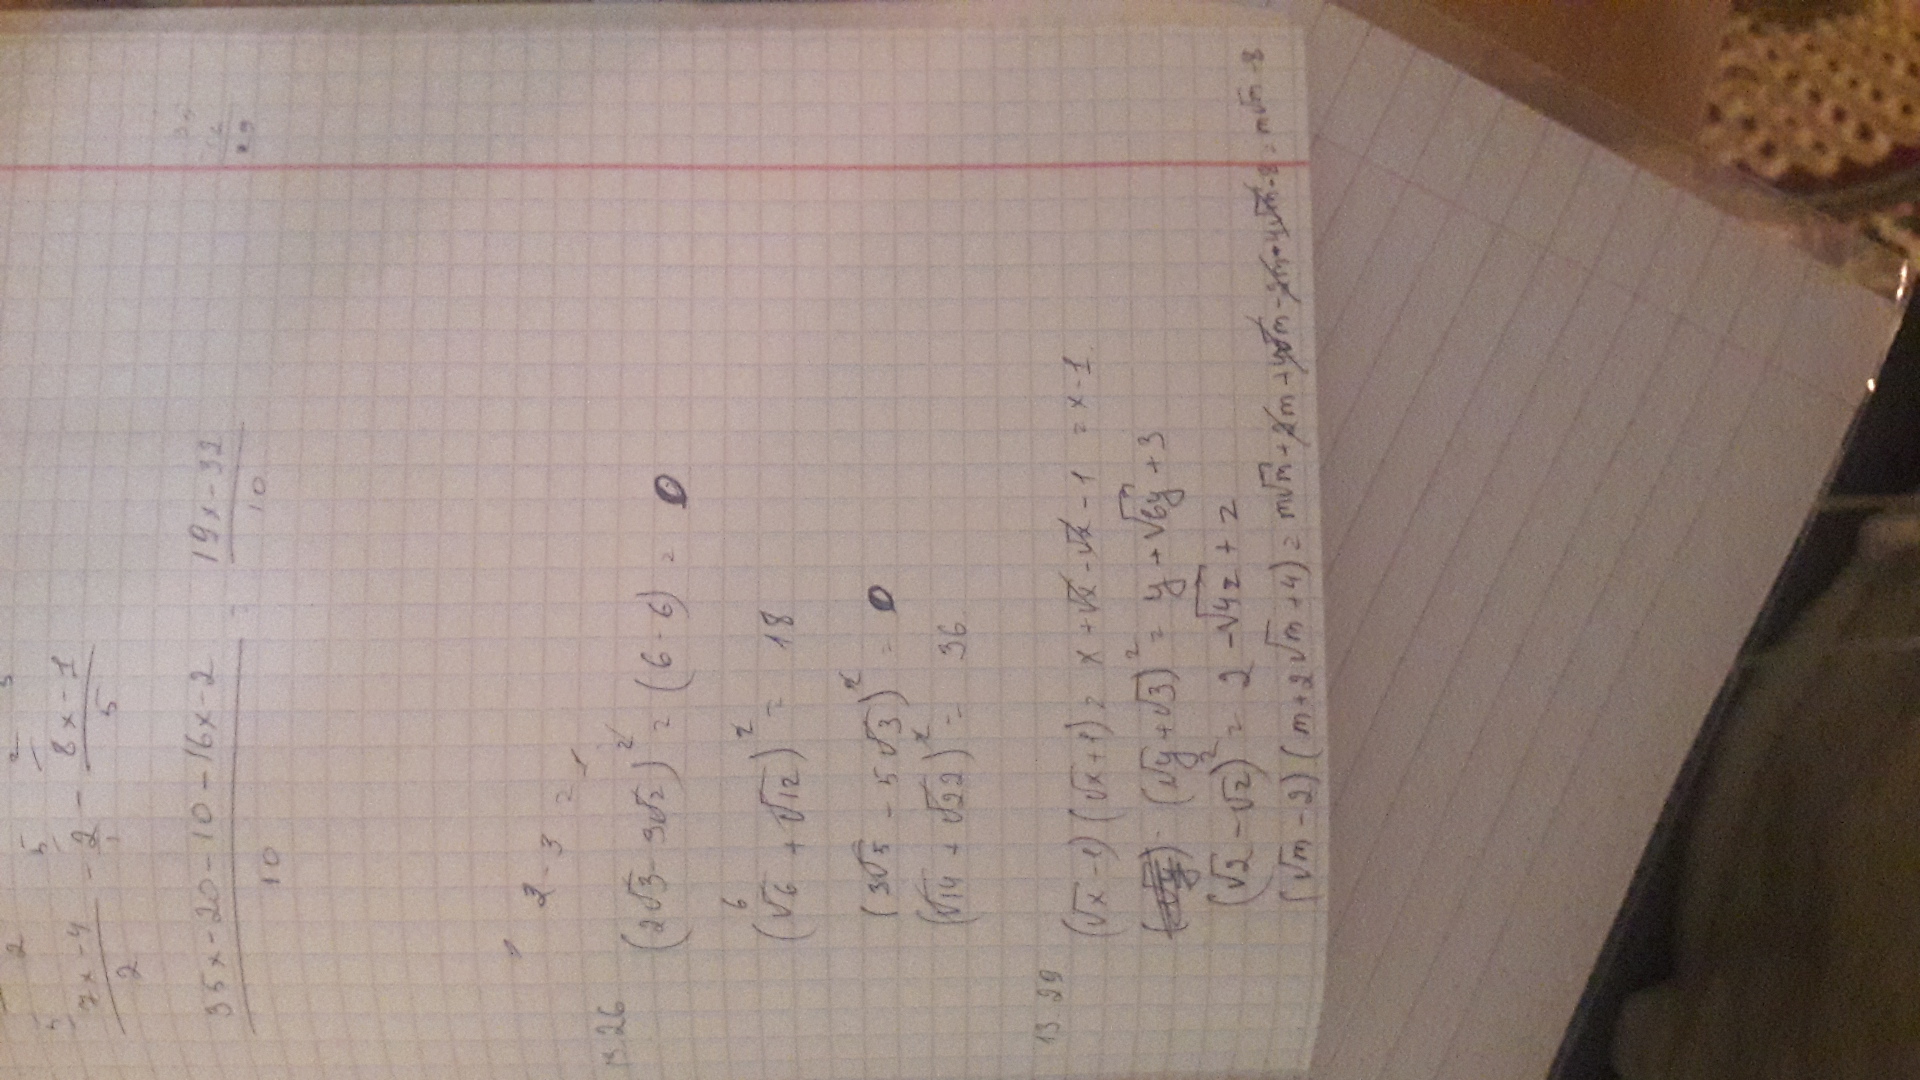 7x-4 / 2 - 2 / 1 - 8x-1 / 5
35x-20-10-16x-2 / 10 = 19x-32 / 10
2-3 =
13.26
(2√3-3√2)² = (6-6) = 0
(√6 + √12)² = 18
(3√5 - 5√3)² = 0
(√14 + √22)² = 36
13.29
(√x-1)(√x+1) = x+√x-√x-1 = x-1
(√y+√3)² = y+√6y+3
(√2-√2)² = 2-√4z+2
(√m-2)(m+2√m+4) = m√m+2m+4√m-2m-4√m-8 = m√m-8